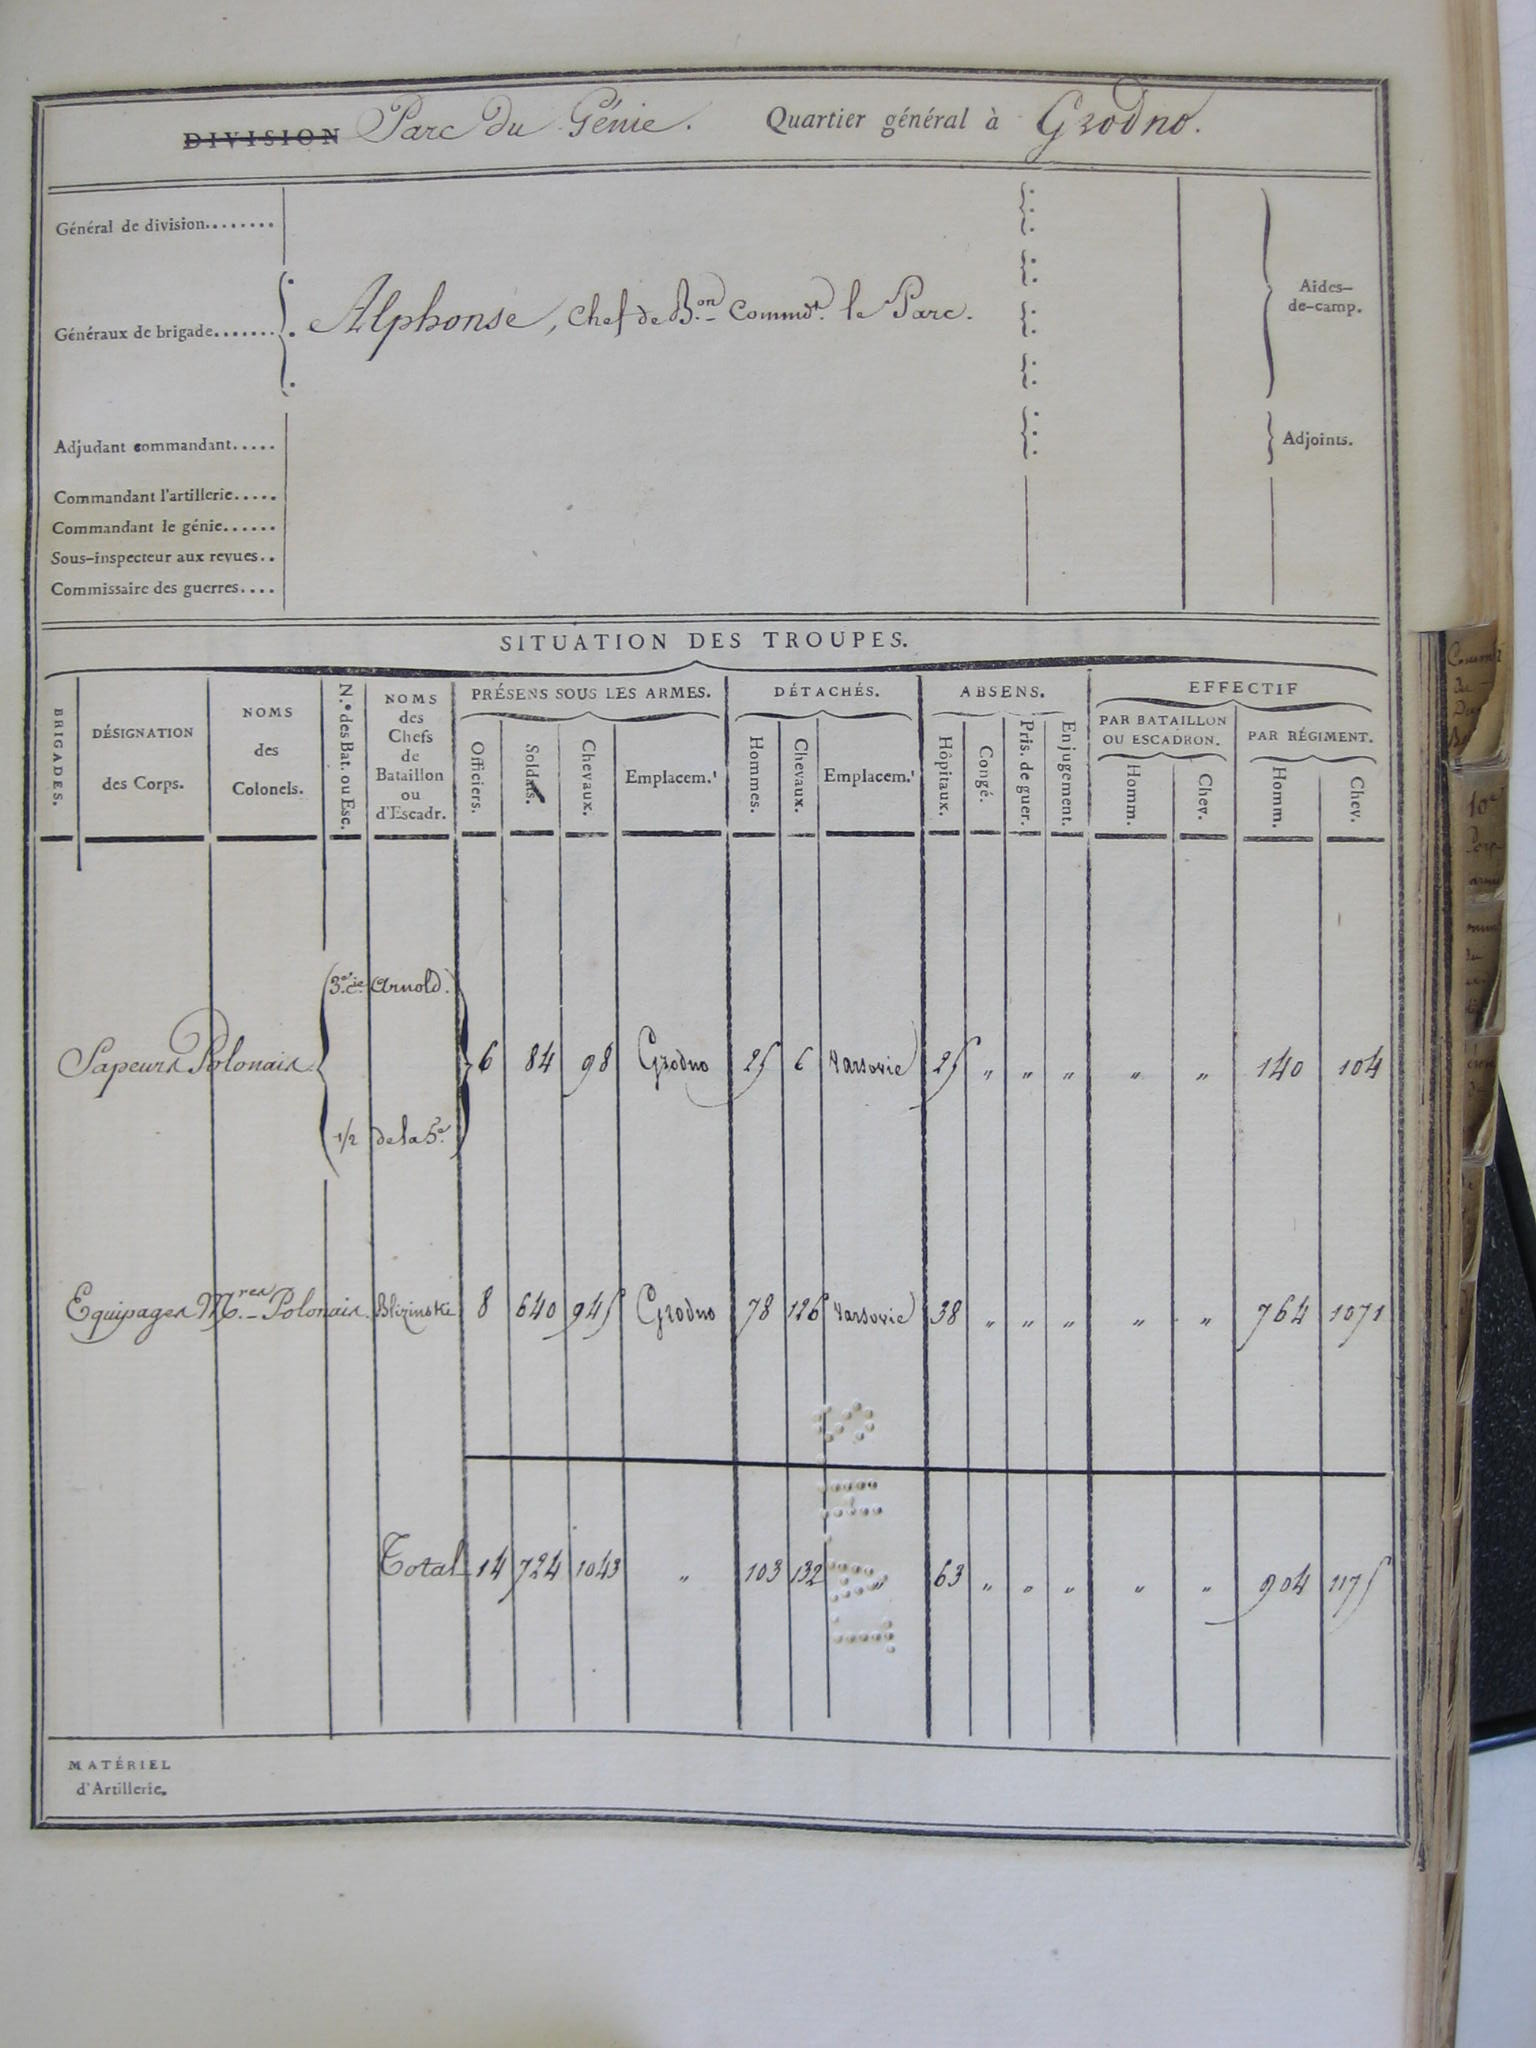 DIVISION Parc du Génie. Quartier général à Grodno.
Général de division........
Généraux de brigade....... Alphonse, Chef de B.on Command.t le Parc.
Aides-
de-camp.
Adjudant commandant.....
Adjoints.
Commandant l'artillerie.....
Commandant le génie......
Sous-inspecteur aux revues..
Commissaire des guerres....
SITUATION DES TROUPES.
BRIGADES.
DÉSIGNATION
des Corps.
NOMS
des
Colonels.
N.os des Bat. ou Esc.
NOMS
des
Chefs
de
Bataillon
ou
d'Escadr.
PRÉSENS SOUS LES ARMES.
Officiers.
Soldats.
Chevaux.
Emplacem.t
DÉTACHÉS.
Hommes.
Chevaux.
Emplacem.t
ABSENS.
Hôpitaux.
Congé.
Pris. de guer.
En jugement.
EFFECTIF
PAR BATAILLON
OU ESCADRON.
Homm.
Chev.
PAR RÉGIMENT.
Homm.
Chev.
3.e C.ie Arnold.
Sapeurs Polonais 6 84 98 Grodno 25 6 Varsovie 25 " " " " " 140 104
1/2 de la 5.e
Equipages M.res Polonais. Blizinski 8 640 945 Grodno 78 126 Varsovie 38 " " " " " 764 1071
Total 14 724 1043 " 103 132 " 63 " " " " " 904 1175
MATÉRIEL
d'Artillerie.